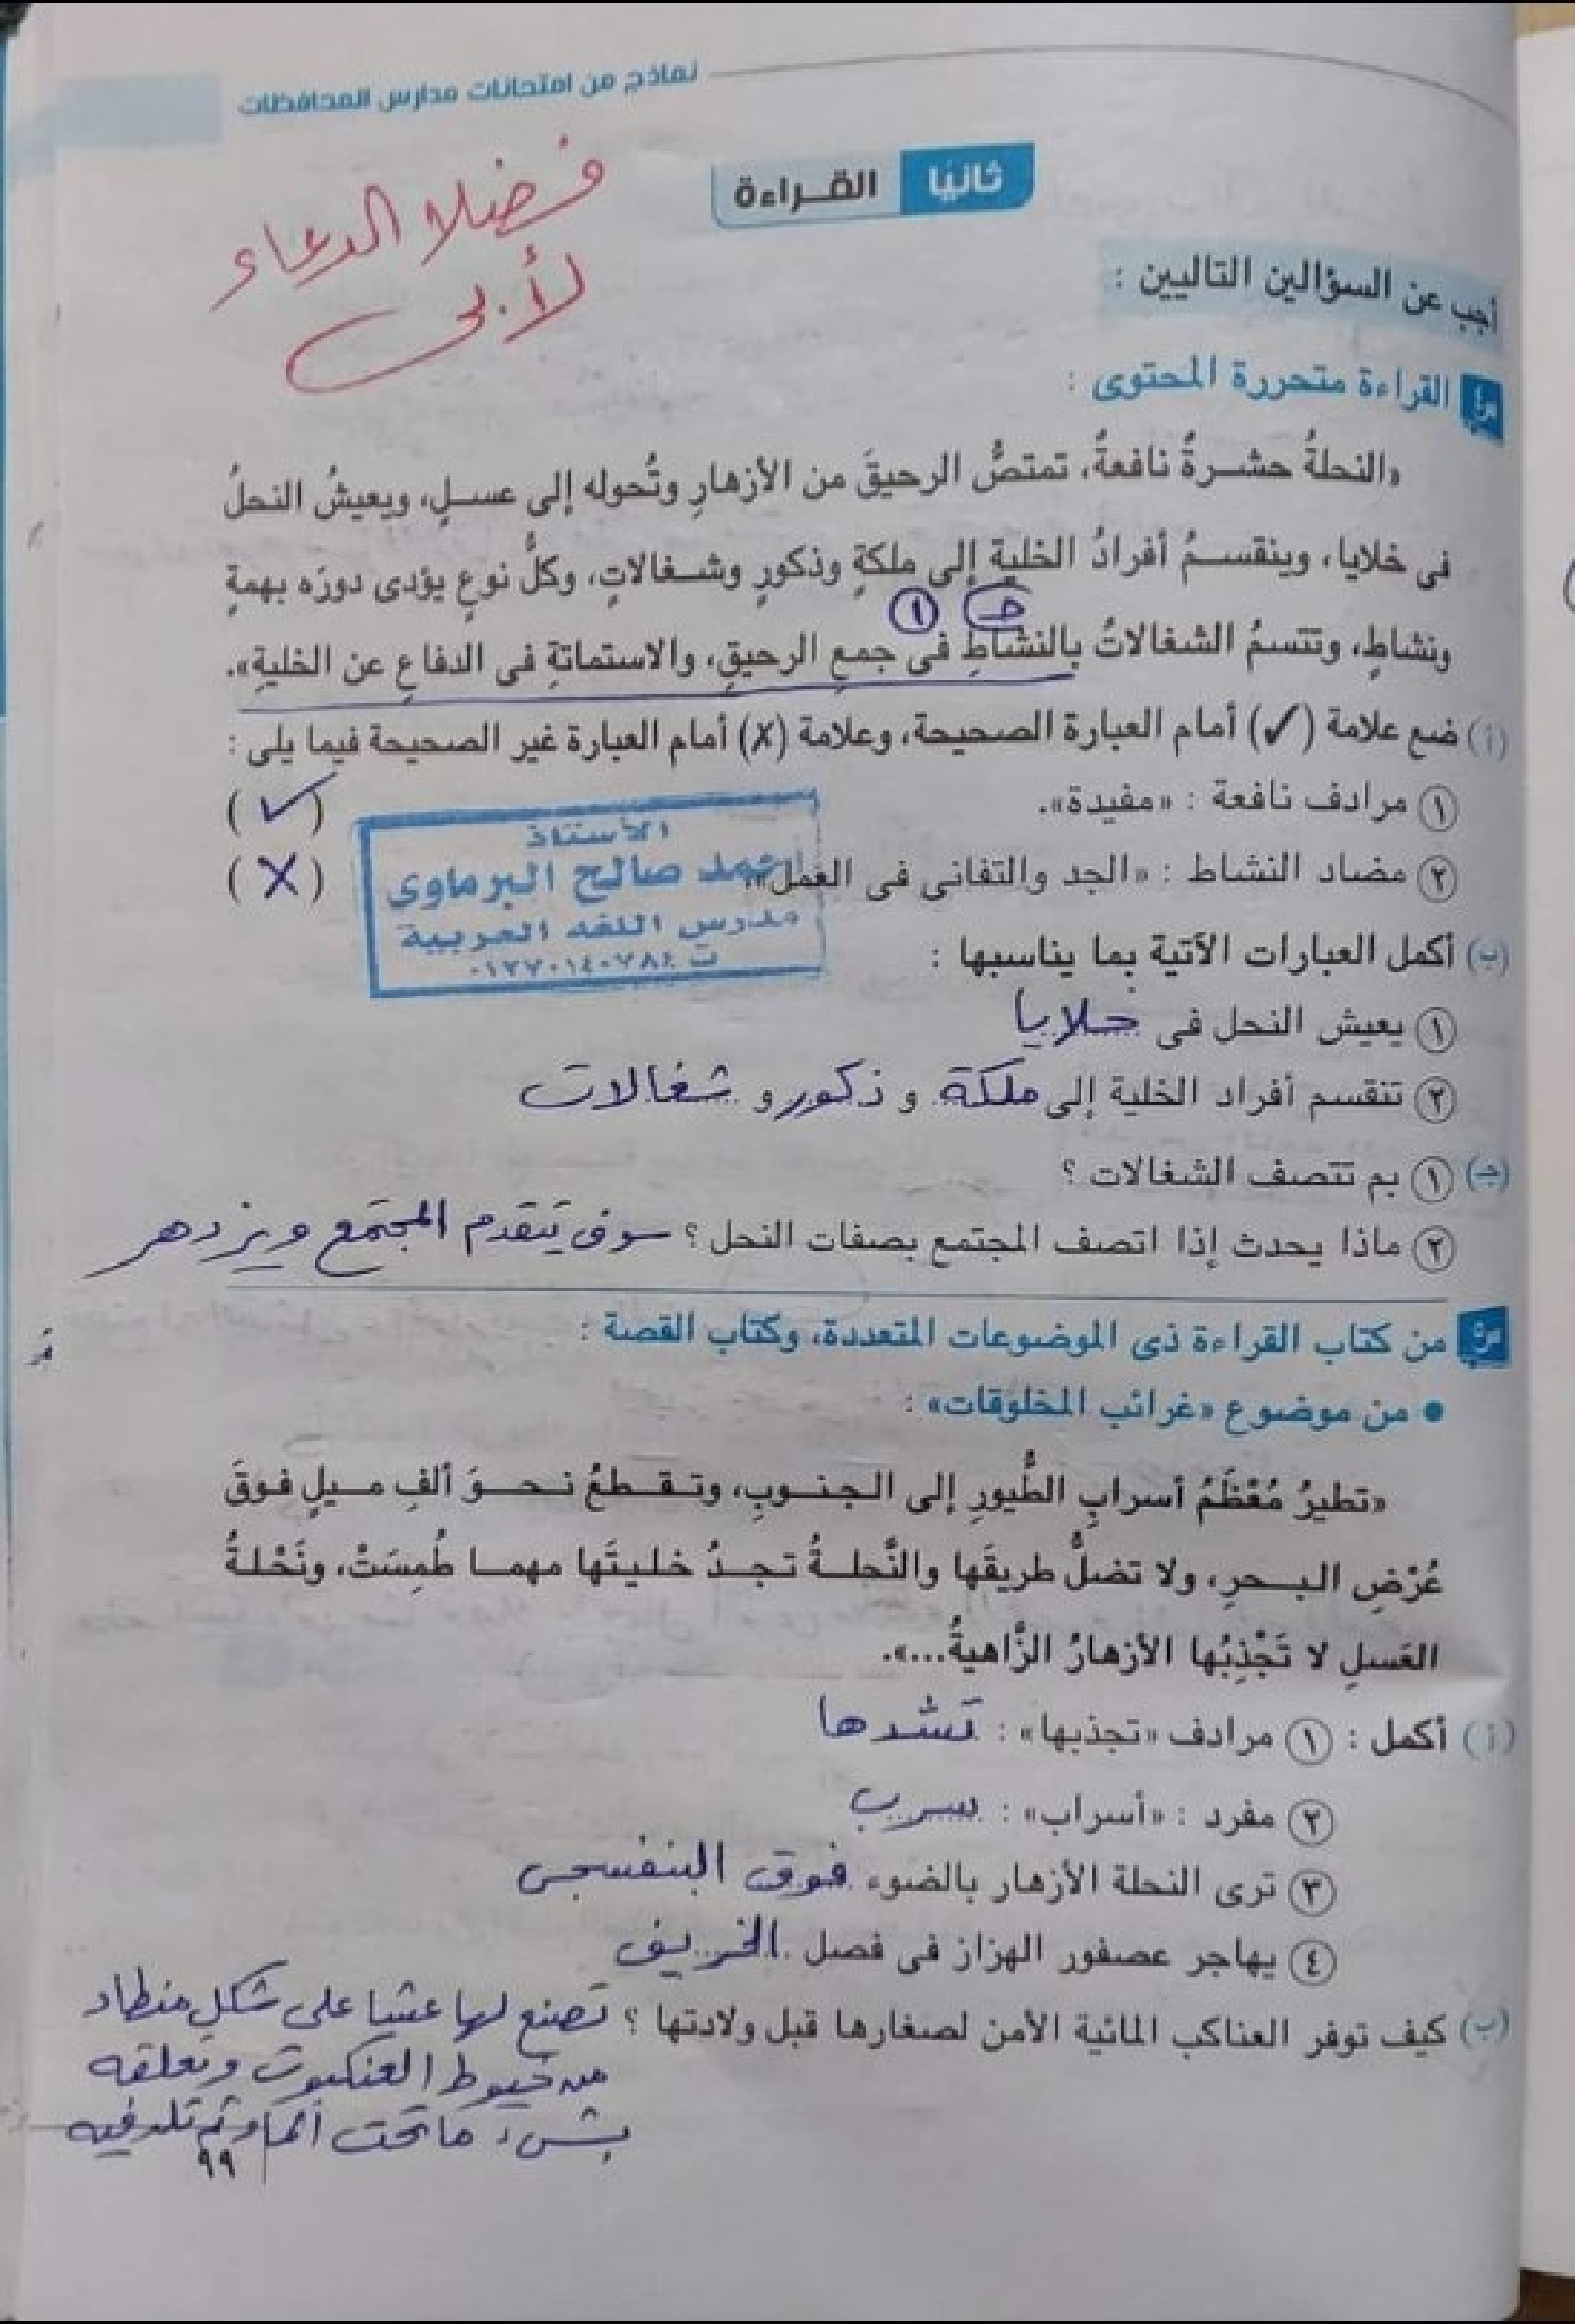 نماذج من امتحانات مدارس المحافظات
ثانيًا القــراءة
فضلا الدعاء
لأبى
أجب عن السؤالين التاليين :
القراءة متحررة المحتوى :
«النحلةُ حشــرةٌ نافعةٌ، تمتصُّ الرحيقَ من الأزهارِ وتُحوله إلى عسلٍ، ويعيشُ النحلُ
فى خلايا، وينقسـمُ أفرادُ الخليةِ إلى ملكةٍ وذكورٍ وشـغالاتٍ، وكلُّ نوعٍ يؤدى دورَه بهمةٍ
جـ ١
ونشاطٍ، وتتسمُ الشغالاتُ بالنشاطِ فى جمعِ الرحيقِ، والاستماتةِ فى الدفاعِ عن الخليةِ».
(أ) ضع علامة (✓) أمام العبارة الصحيحة، وعلامة (✗) أمام العبارة غير الصحيحة فيما يلى :
١ مرادف نافعة : «مفيدة». (✓)
٢ مضاد النشاط : «الجد والتفانى فى العمل». (✗)
الأستاذ
أحمد صالح البرماوى
مدرس اللغة العربية
(ب) أكمل العبارات الآتية بما يناسبها :
١ يعيش النحل فى خلايا
٢ تنقسم أفراد الخلية إلى ملكة و ذكور و شغالات
(جـ) ١ بم تتصف الشغالات ؟
٢ ماذا يحدث إذا اتصف المجتمع بصفات النحل ؟ سوف يتقدم المجتمع ويزدهر
من كتاب القراءة ذى الموضوعات المتعددة، وكتاب القصة :
• من موضوع «غرائب المخلوقات» :
«تطيرُ مُعْظَمُ أسرابِ الطُّيورِ إلى الجنـوبِ، وتـقـطعُ نـحـوَ ألفِ مـيلٍ فـوقَ
عُرْضِ البـحرِ، ولا تضلُّ طريقَها والنَّحلـةُ تـجـدُ خليتَها مهمـا طُمِسَتْ، ونَحْلةُ
العَسلِ لا تَجْذِبُها الأزهارُ الزَّاهيةُ...».
(أ) أكمل : ١ مرادف «تجذبها» : تشدها
٢ مفرد : «أسراب» : سرب
٣ ترى النحلة الأزهار بالضوء فوق البنفسجى
٤ يهاجر عصفور الهزاز فى فصل الخريف
(ب) كيف توفر العناكب المائية الأمن لصغارها قبل ولادتها ؟ تصنع لها عشا على شكل منطاد
من خيوط العنكبوت وتعلقه
بشىء ما تحت الماء ثم تلد فيه
٩٩